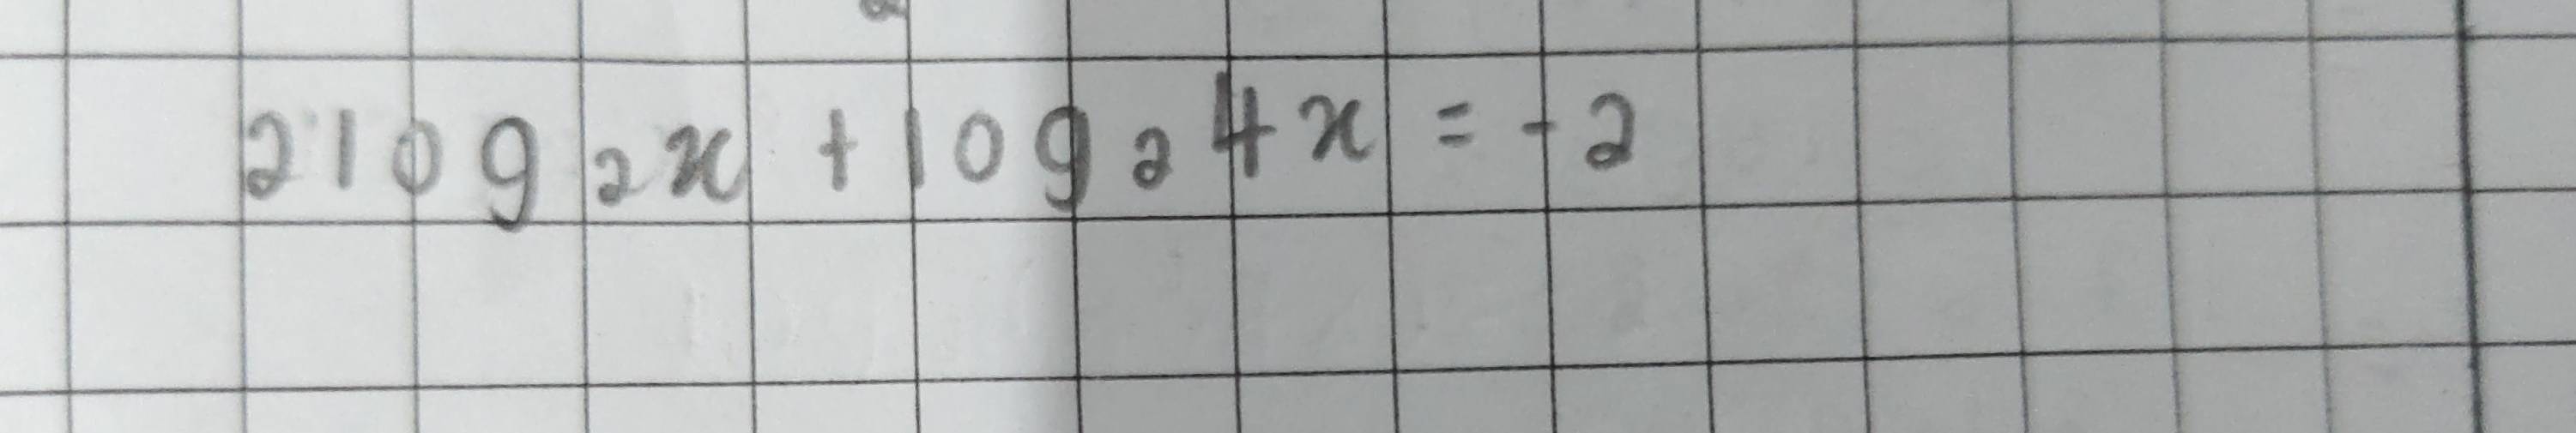 2log₂x + log₂4x = -2